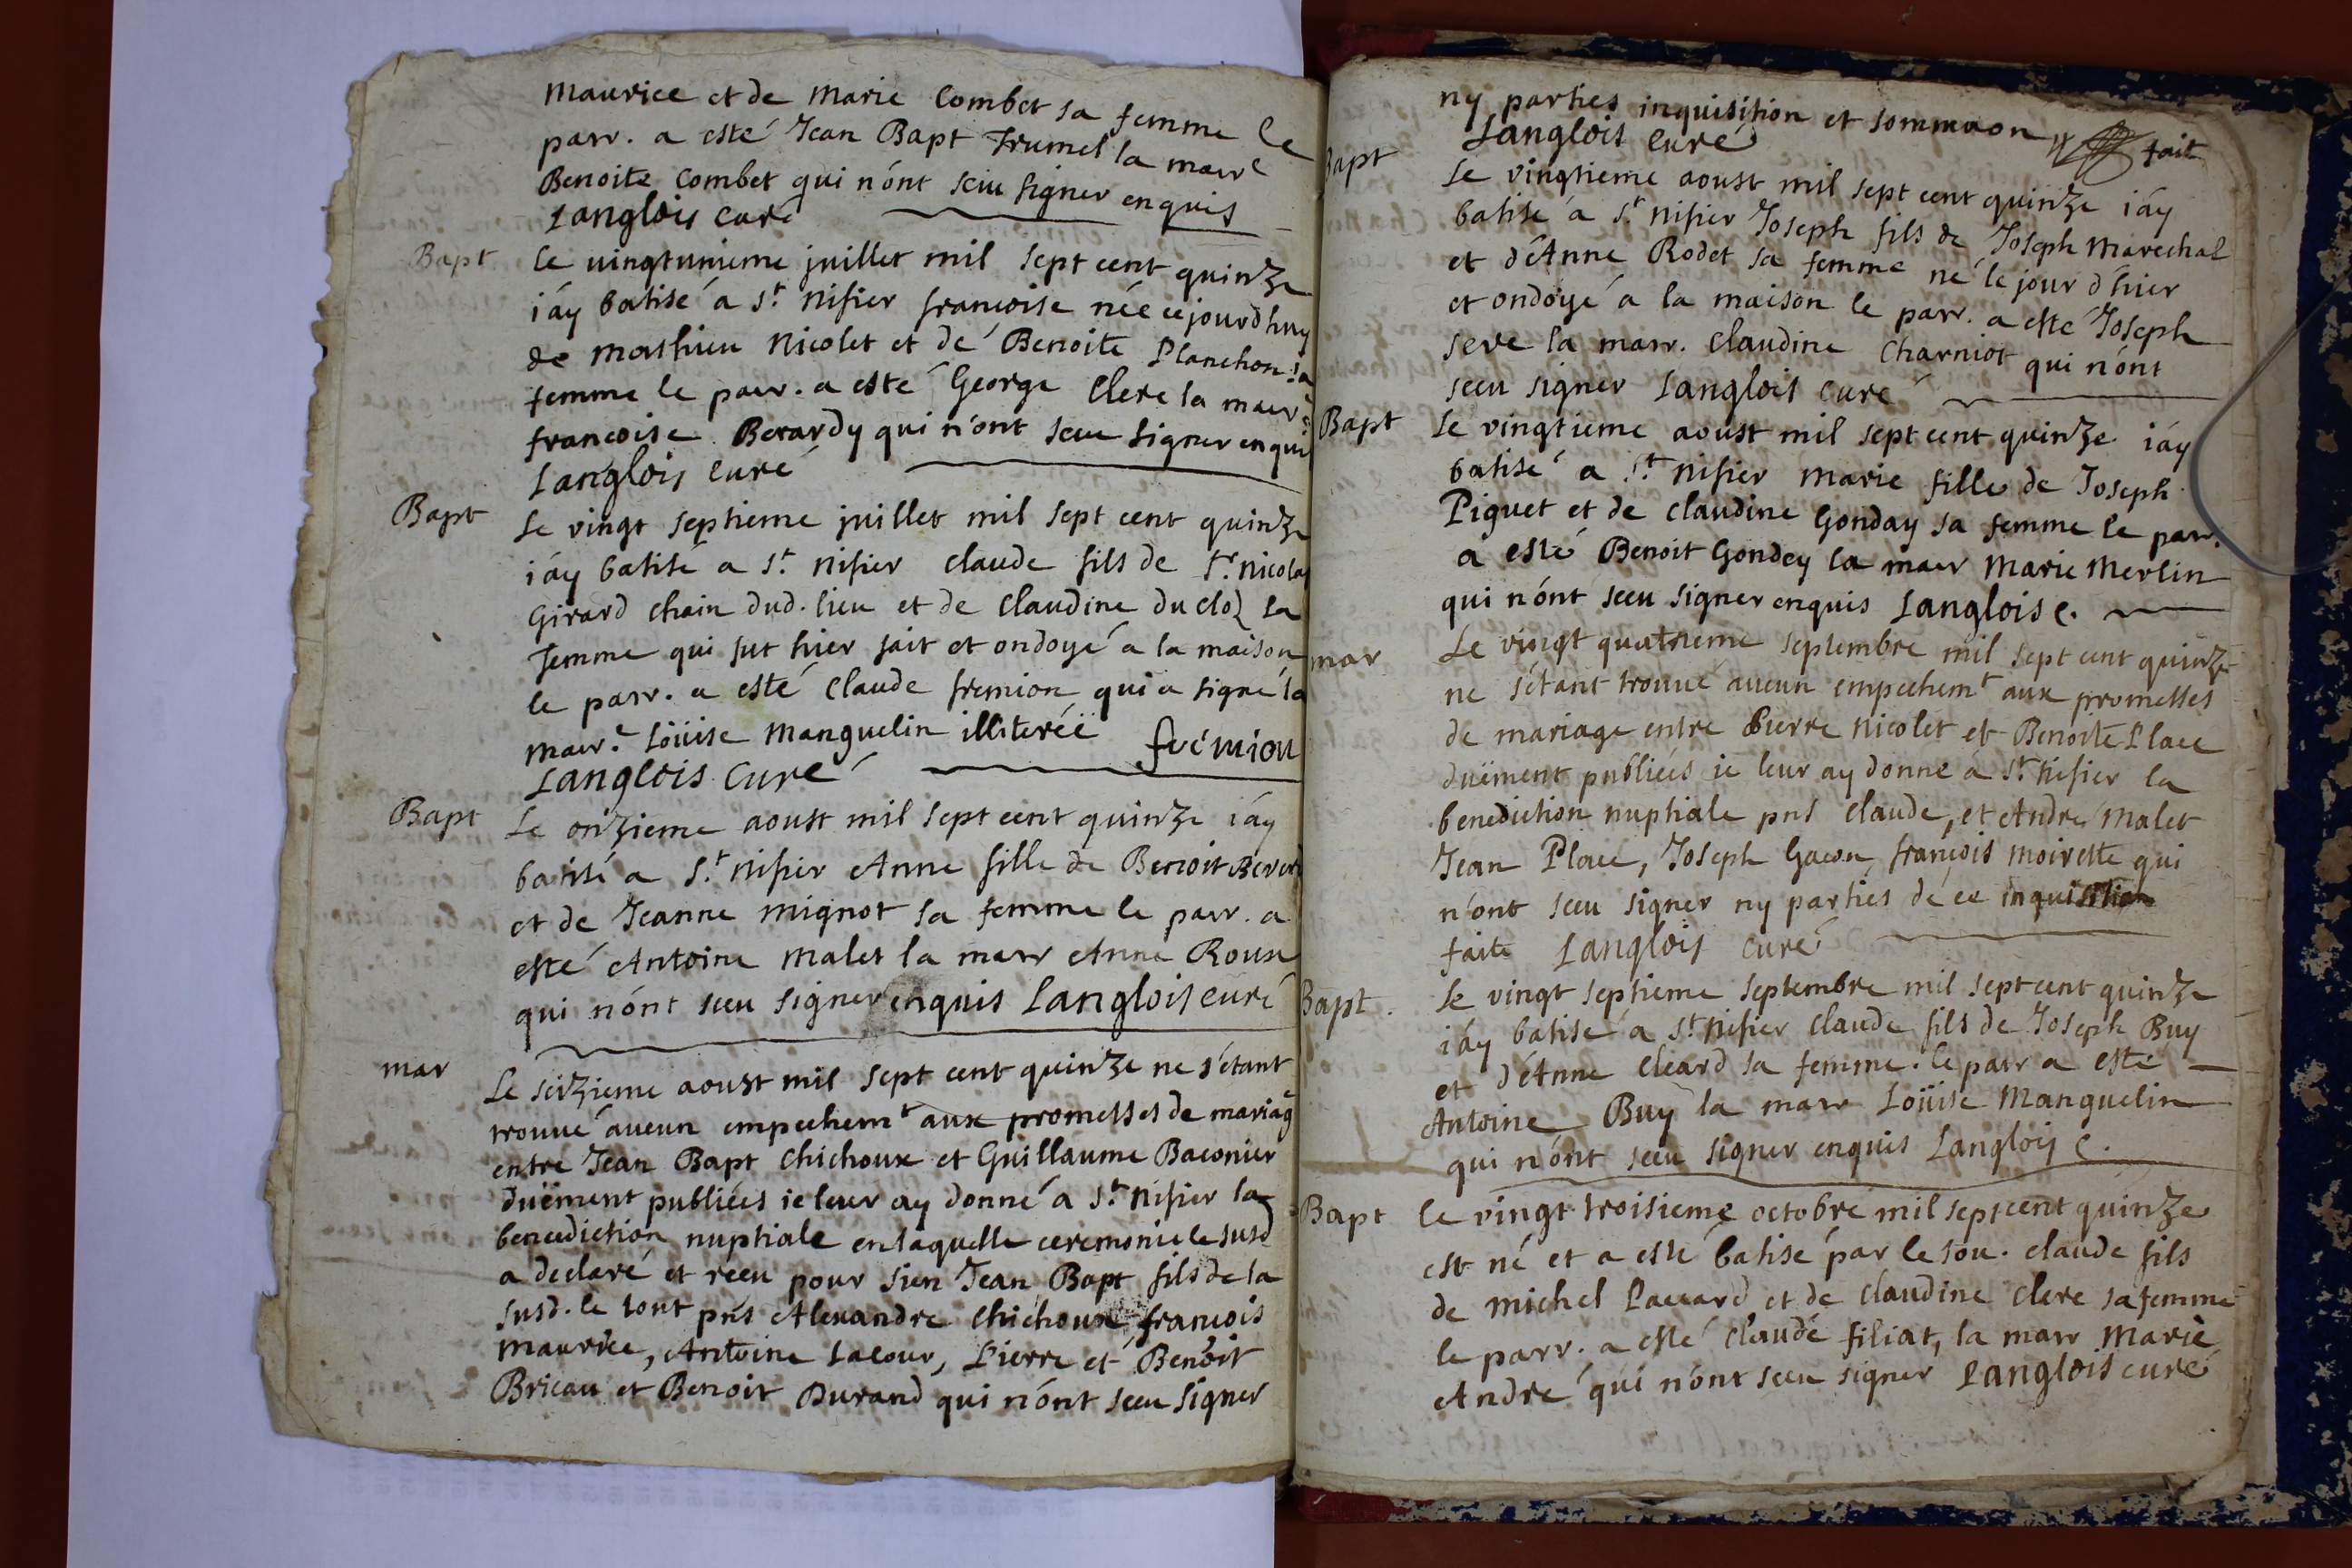 maurice et de marie Combet sa femme le
parr. a esté Jean Bapt Trumel la marr^e
Benoite Combet qui n'ont sceu signer enquis
Langlois curé
Bapt
Le vingtunieme juillet mil sept cent quinze
i'ay batisé a s^t. nisier francoise née cejourdhuy
de mathieu nicolet et de Benoite Planchon sa
femme le parr. a esté George Clerc la marr^e
francoise Berardy qui n'ont sceu signer enquis
Langlois curé
Bapt
Le vingt septieme juillet mil sept cent quinze
i'ay batisé a s^t. nisier claude fils de s^r. nicolas
Girard chain dud. lieu et de claudine du cloz sa
femme qui fut hier fait et ondoyé a la maison
le parr. a esté claude fremion qui a signé la
marr^e. Loüise manguelin illiterée fremion
Langlois curé
Bapt
Le onzieme aoust mil sept cent quinze i'ay
batisé a s^t. nisier Anne fille de Benoit
et de Jeanne mignot sa femme le parr. a
esté Antoine malet la marr Anne Roux
qui n'ont sceu signer enquis Langlois curé
mar
Le seizieme aoust mil sept cent quinze ne s'étant
trouué aucun empechem^t aux promesses de mariag^e
entre Jean Bapt Chichoux et Guillaume Baconier
duëment publiées ie leur ay donné a s^t. nisier la
benediction nuptiale en laquelle ceremonie le susd
a declaré et receu pour sien Jean Bapt fils de la
susd. le tout pns Alexandre Chichoux françois
maurice, Antoine Lacour, Pierre et Benoit
Bricau et Benoit Durand qui n'ont sceu signer
ny parties inquisition et sommaon fait
Langlois curé
Bapt
Le vingtieme aoust mil sept cent quinze i'ay
batisé a s^t nisier Joseph fils de Joseph marechal
et d'Anne Rodet sa femme né le jour d'hier
et ondoyé a la maison le parr. a esté Joseph
seve la marr. claudine Charniot qui n'ont
sceu signer Langlois curé
Bapt
Le vingtieme aoust mil sept cent quinze i'ay
batisé a s^t. nisier marie fille de Joseph
Piguet et de claudine Gonday sa femme le parr.
a esté Benoit Gondey la marr marie merlin
qui n'ont sceu signer enquis Langlois c.
mar
Le vingt quatrieme septembre mil sept cent quinze
ne s'étant trouué aucun empechem^t aux promesses
de mariage entre Pierre nicolet et Benoite Place
duëment publiées ie leur ay donné a s^t. nisier la
benediction nuptiale pns claude, et Andre malet
Jean Place, Joseph Gacon, françois moirette qui
n'ont sceu signer ny parties de ce inquisition
faite Langlois curé
Bapt.
Le vingt septieme septembre mil sept cent quinze
i'ay batisé a s^t nisier claude fils de Joseph Buy
et d'Anne cleard sa femme. le parr a esté
Antoine Buy la marr Loüise manguelin
qui n'ont sceu signer enquis Langlois c.
Bapt
le vingt troisieme octobre mil sept cent quinze
est né et a esté batisé par le sou. claude fils
de michel Pacard et de claudine clerc sa femme
le parr. a esté claude filiat, la marr marie
Andre qui n'ont sceu signer Langlois curé